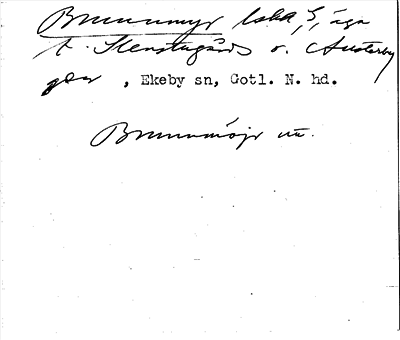 Brunnmyr lska, S, äga
t. Stenstugårds o. Austerby
gdar , Ekeby sn, Gotl. N. hd.
Brunnmöjr